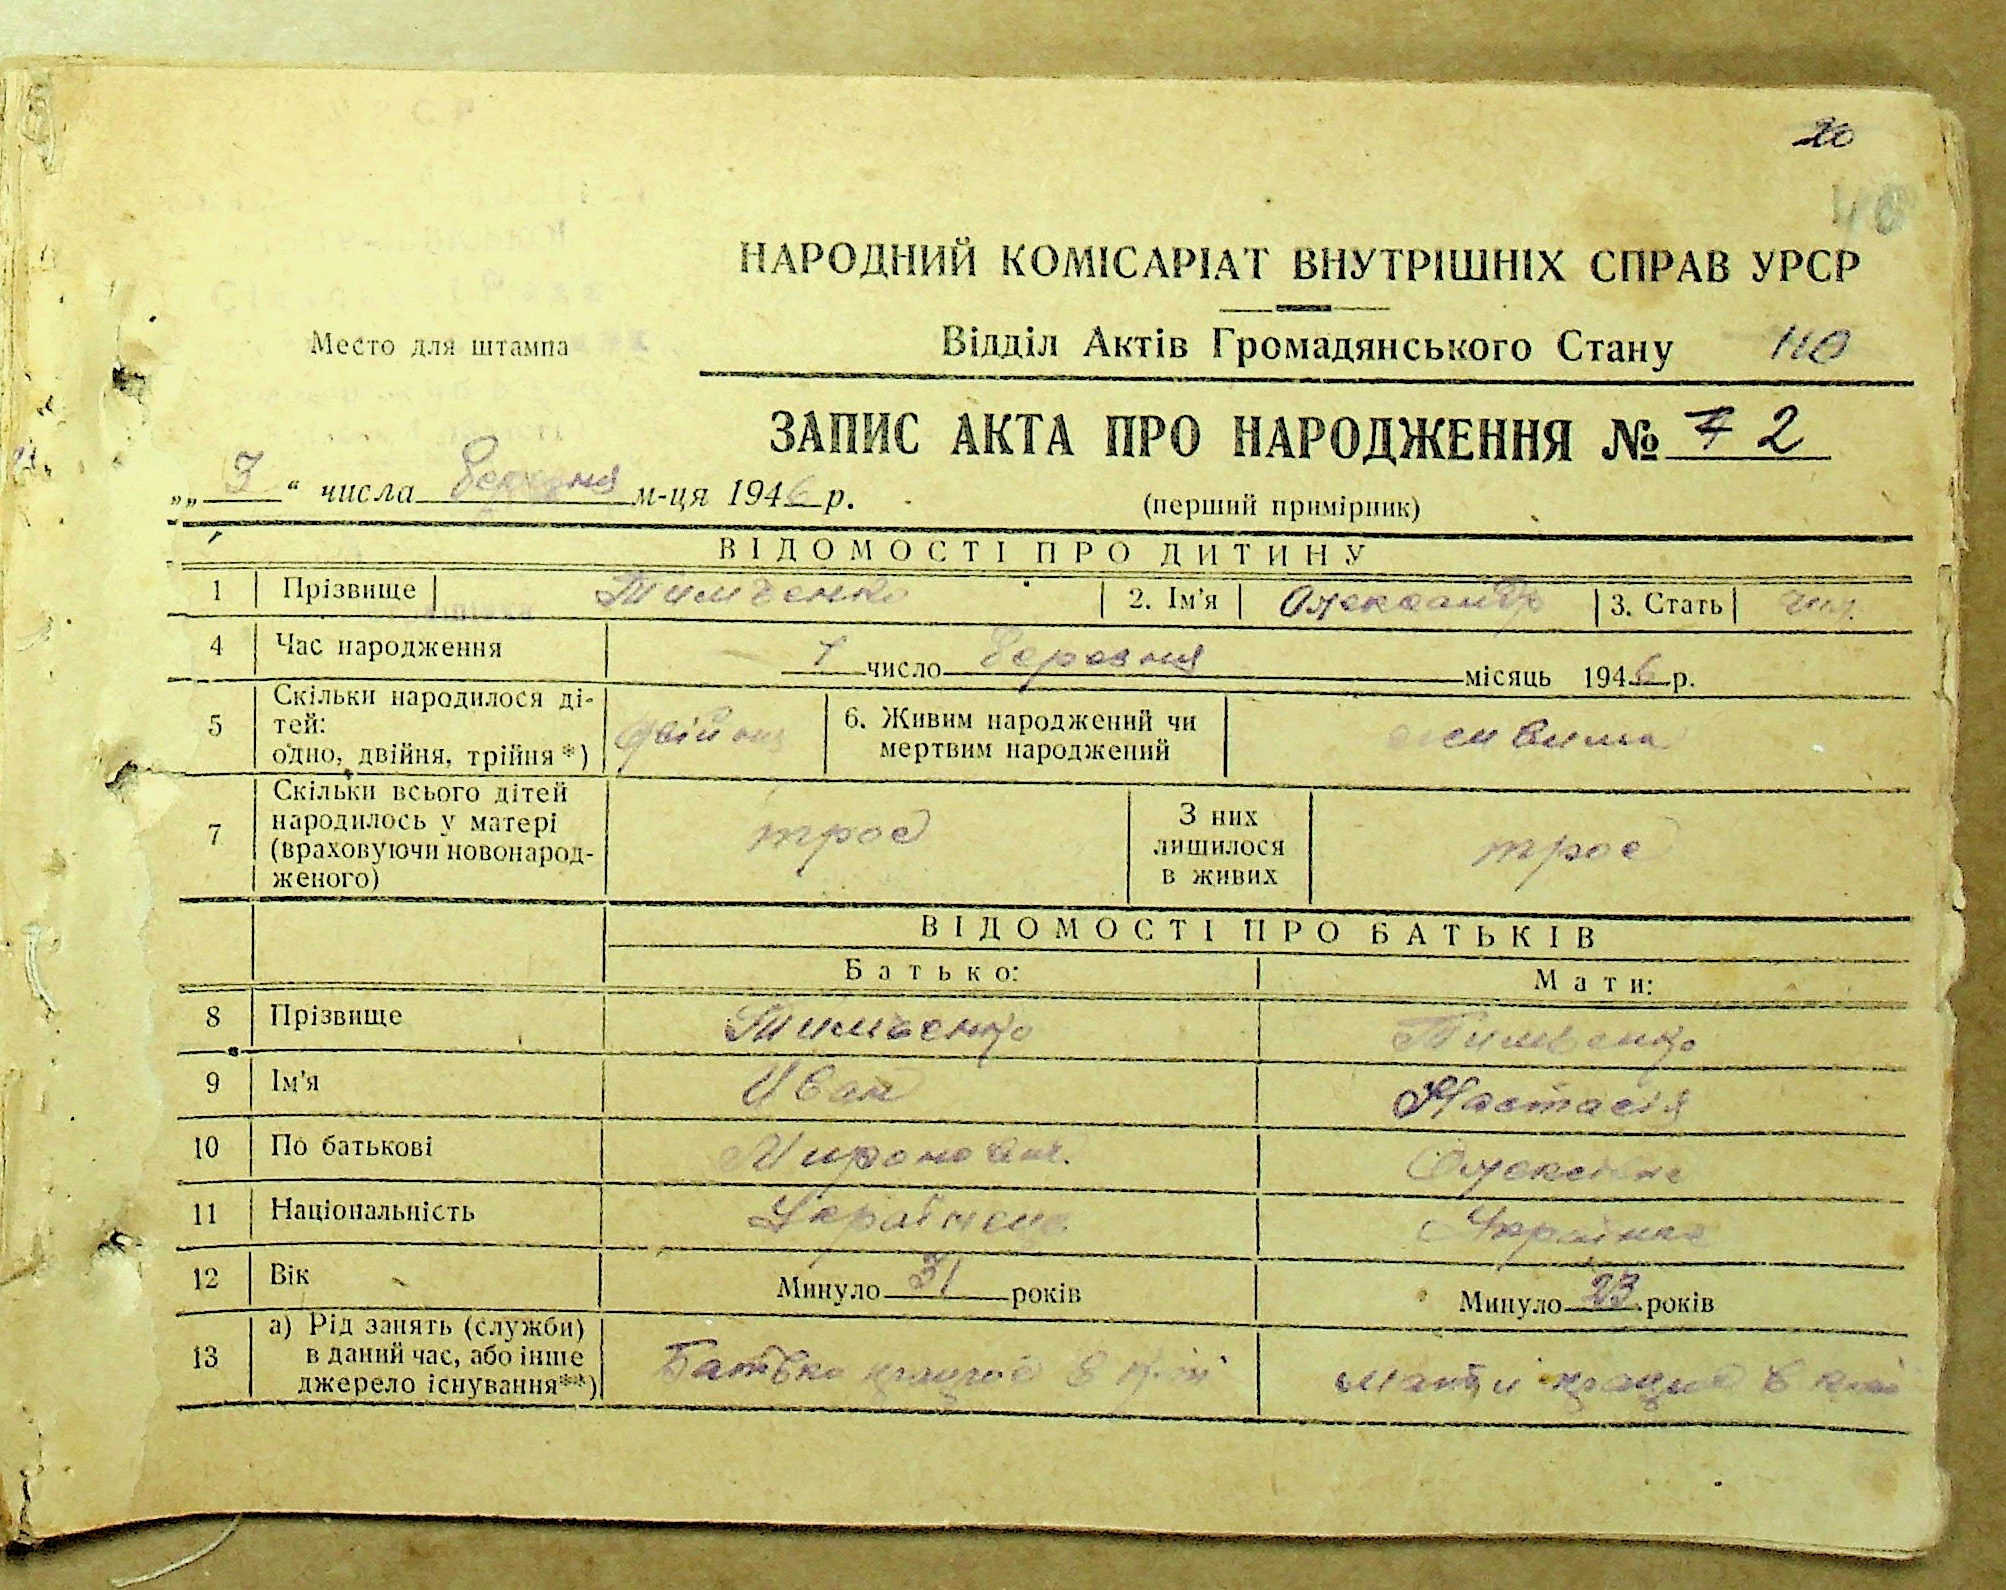 20
40
НАРОДНИЙ КОМІСАРІАТ ВНУТРІШНІХ СПРАВ УРСР
Место для штампа
Відділ Актів Громадянського Стану 40
ЗАПИС АКТА ПРО НАРОДЖЕННЯ № 2
„ 7 “ числа березня м-ця 1946 р.
(перший примірник)
ВІДОМОСТІ ПРО ДИТИНУ
1 Прізвище Тимченко 2. Ім'я Олександр 3. Стать чол.
4 Час народження 1 число березня місяць 1946 р.
5 Скільки народилося ді-
тей:
одно, двійня, трійня *) двійня 6. Живим народжений чи
мертвим народжений живими
7 Скільки всього дітей
народилось у матері
(враховуючи новонарод-
женого) троє З них
лишилося
в живих троє
ВІДОМОСТІ ПРО БАТЬКІВ
Батько: Мати:
8 Прізвище Тимченко Тимченко
9 Ім'я Иван Настасія
10 По батькові Миронович Олексієвна
11 Національність Українець Українка
12 Вік Минуло 31 років Минуло 23 років
13 а) Рід занять (служби)
в даний час, або інше
джерело існування**) Батько працює в Мати працює в